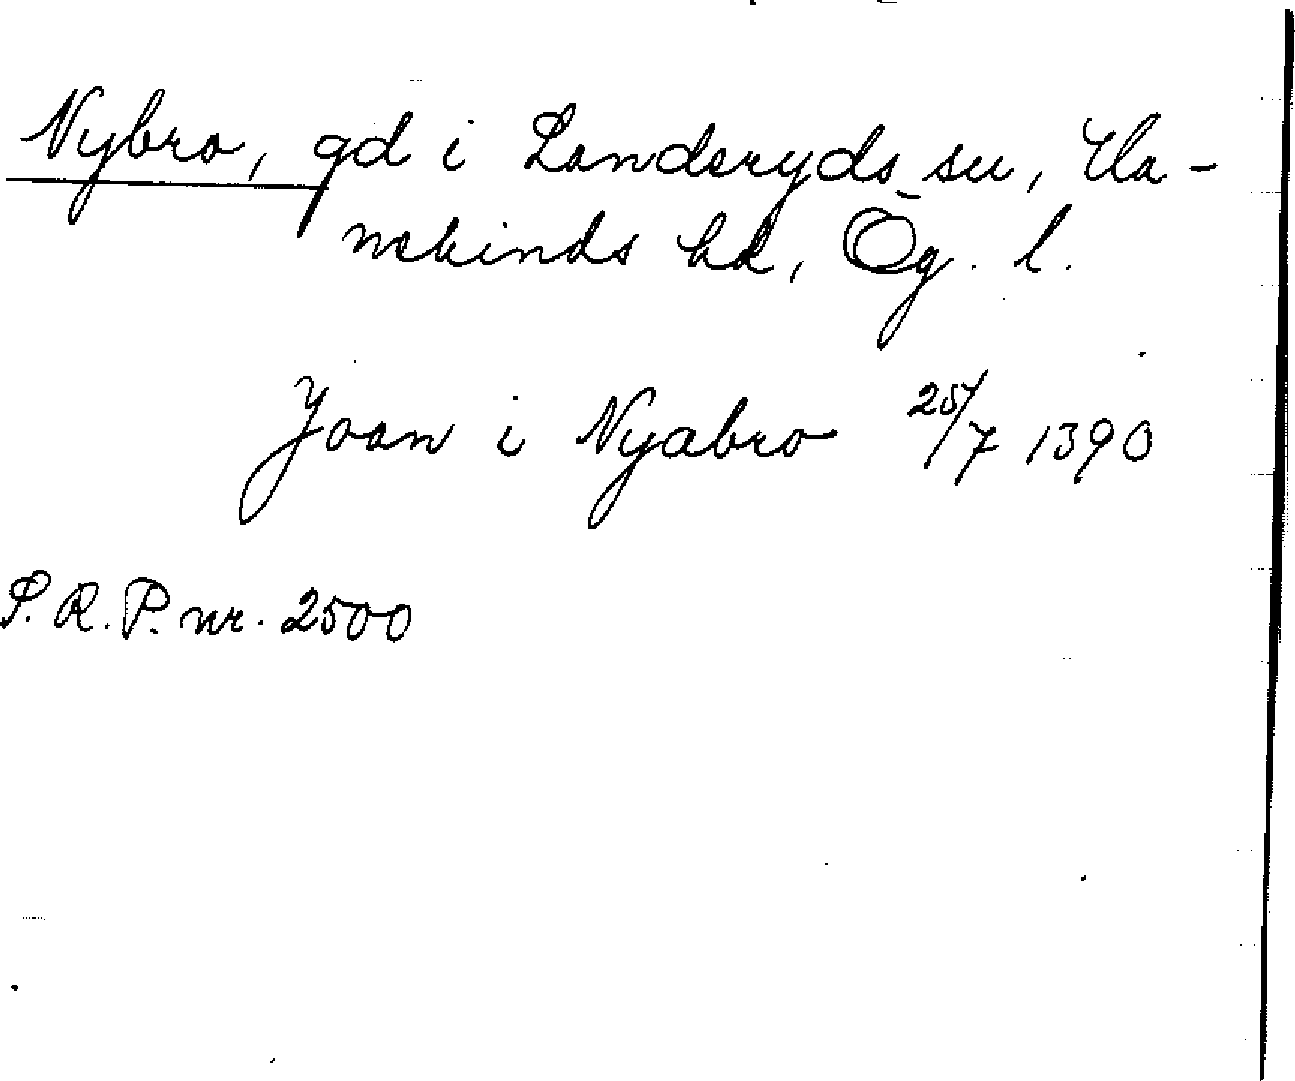 Nybro, gd i Landeryds sn, Ha-
nekinds hd, Ög. l.
Joan i Nyabro 25/7 1390
S. R. P. nr. 2500